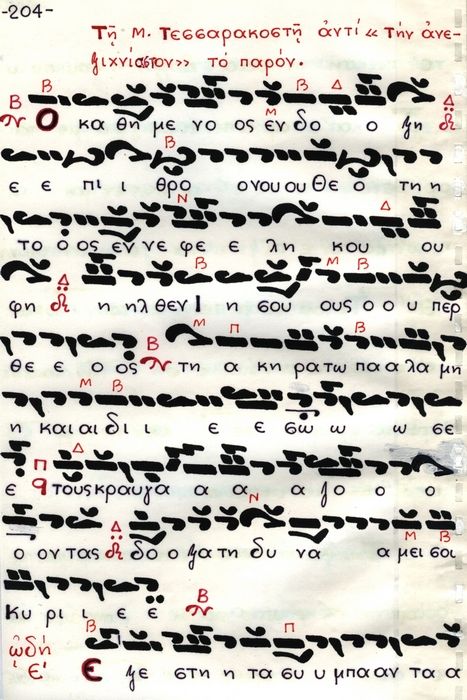 -204-
Τῇ Μ. Τεσσαρακοστῇ ἀντί «Τήν ἀνε-
ξιχνίαστον» τό παρόν.
Ο κα θη με νο ος εν δο ο ξη
ε ε πι ι θρο ονου ου Θε ο τη η
το ὁ ος εν νε φε ε λη κου ου
φη η ηλ θεν Ι η σου ους ο ο υ περ
θε ε ο ος τη α κη ρα τω πα α λα μη
η και αι δι ι ε ε σω ω ω σε
ε τους κραυγα α α α ζο ο ο
ο ον τας δο ο ξα τη δυ να α μει σοι
Κυ ρι ι ε ε
ᾠδή
ε' Ε ξε στη η τα συ υ μπααν τα α